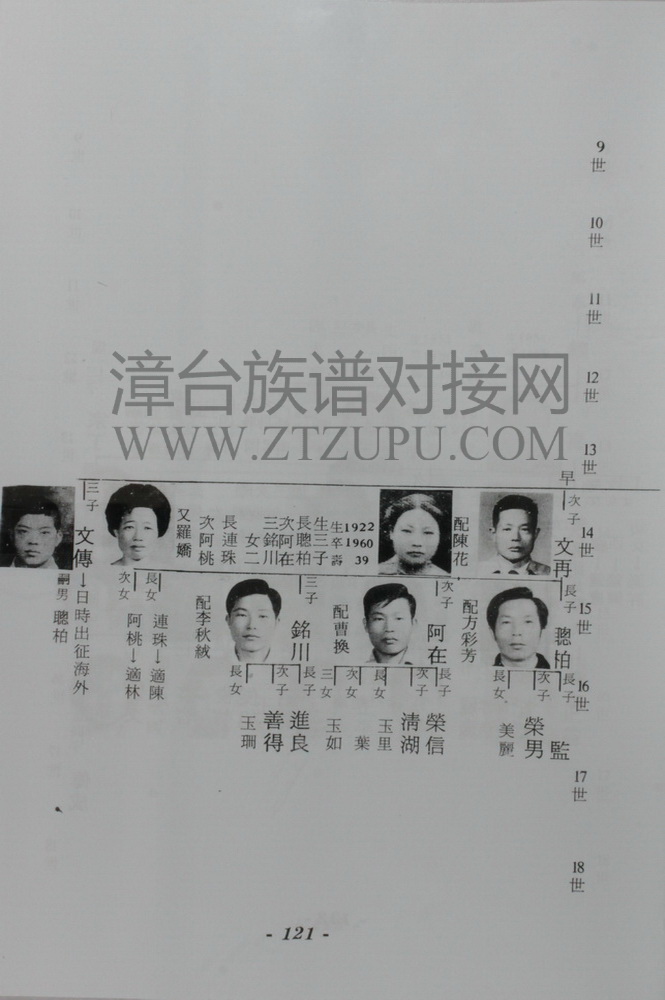 9世
10世
11世
12世
13世
14世
15世
16世
17世
18世
漳台族谱对接网
WWW.ZTZUPU.COM
早
次子
文再
配陳花
生1922
卒1960
壽39
生三子
長聰柏
次阿在
三銘川
女二
長連珠
次阿桃
又羅嬌
三子
文傳→日時出征海外
嗣男 聰柏
長子
聰柏
配方彩芳
次子
阿在
配曹換
三子
銘川
配李秋絨
長女
連珠→適陳
次女
阿桃→適林
長子
監
次子
榮男
長女
美麗
長子
榮信
次子
清湖
長女
玉里
次女
葉
三女
玉如
長子
進良
次子
善得
長女
玉珊
- 121 -